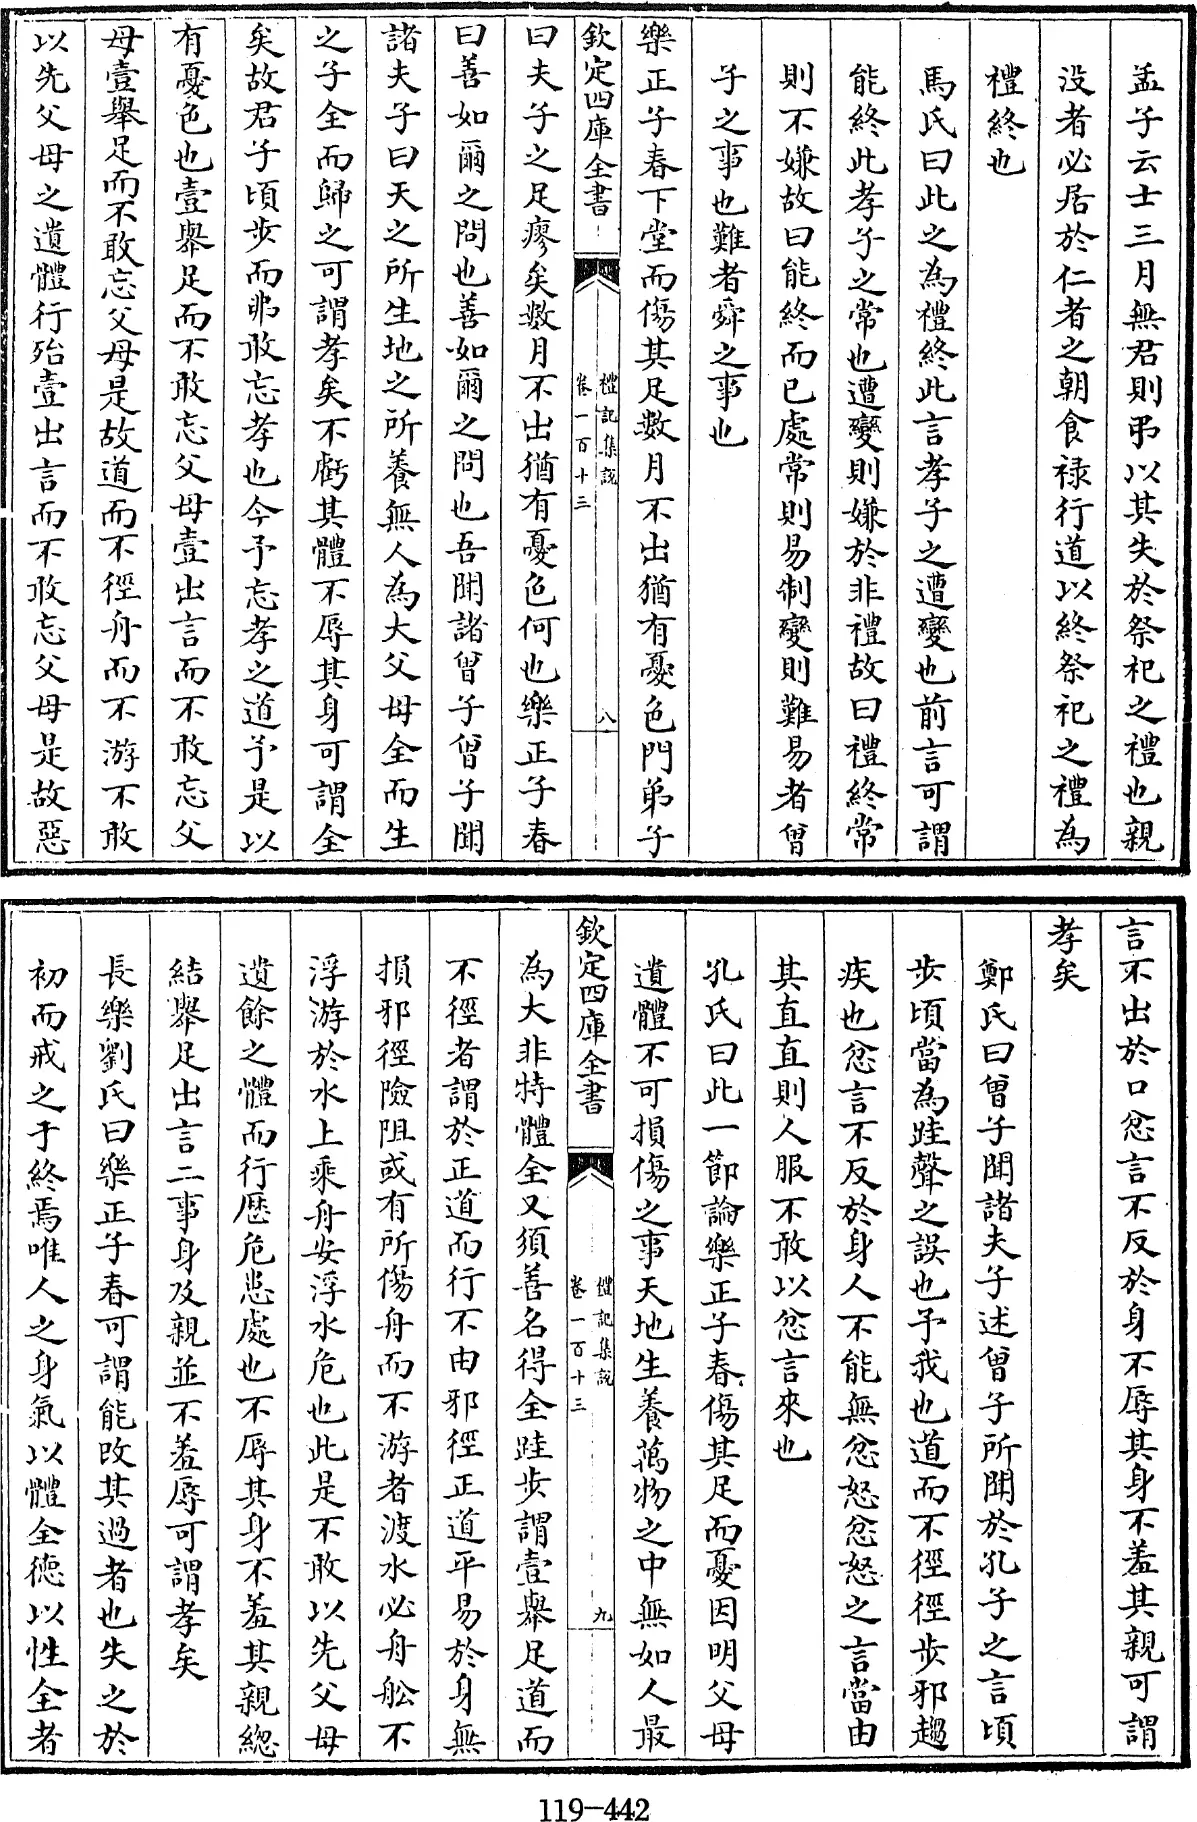 孟子云士三月無君則弔以其失於祭祀之禮也親
没者必居於仁者之朝食禄行道以終祭祀之禮為
禮終也
馬氏曰此之為禮終此言孝子之遭變也前言可謂
能終此孝子之常也遭變則嫌於非禮故曰禮終常
則不嫌故曰能終而已處常則易制變則難易者曾
子之事也難者舜之事也
樂正子春下堂而傷其足數月不出猶有憂色門弟子
欽定四庫全書
禮記集說
卷一百十三
八
曰夫子之足瘳矣數月不出猶有憂色何也樂正子春
曰善如爾之問也善如爾之問也吾聞諸曾子曾子聞
諸夫子曰天之所生地之所養無人為大父母全而生
之子全而歸之可謂孝矣不虧其體不辱其身可謂全
矣故君子頃步而弗敢忘孝也今予忘孝之道予是以
有憂色也壹舉足而不敢忘父母壹出言而不敢忘父
母壹舉足而不敢忘父母是故道而不徑舟而不游不敢
以先父母之遺體行殆壹出言而不敢忘父母是故惡
言不出於口忿言不反於身不辱其身不羞其親可謂
孝矣
鄭氏曰曾子聞諸夫子述曾子所聞於孔子之言頃
步頃當為跬聲之誤也予我也道而不徑徑步邪趨
疾也忿言不反於身人不能無忿怒忿怒之言當由
其直直則人服不敢以忿言來也
孔氏曰此一節論樂正子春傷其足而憂因明父母
遺體不可損傷之事天地生養萬物之中無如人最
欽定四庫全書
禮記集說
卷一百十三
九
為大非特體全又須善名得全跬步謂壹舉足道而
不徑者謂於正道而行不由邪徑正道平易於身無
損邪徑險阻或有所傷舟而不游者渡水必舟舩不
浮游於水上乘舟安浮水危也此是不敢以先父母
遺餘之體而行歷危患處也不辱其身不羞其親總
結舉足出言二事身及親並不羞辱可謂孝矣
長樂劉氏曰樂正子春可謂能改其過者也失之於
初而戒之于終焉唯人之身氣以體全德以性全者
119-442